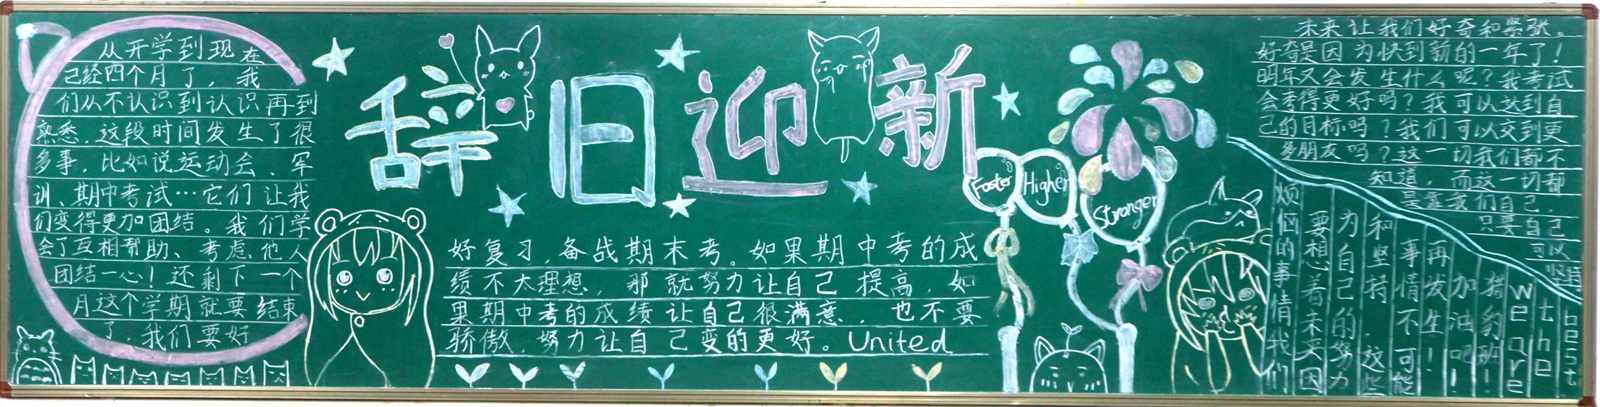 从开学到现在
已经四个月了，我
们从不认识到认识再到
熟悉，这段时间发生了很
多事，比如说运动会、军
训、期中考试…它们让我
们变得更加团结。我们学
会了互相帮助、考虑他人
团结一心！还剩下一个
月这个学期就要结束
了，我们要好
辞旧迎新
好复习，备战期末考。如果期中考的成
绩不太理想，那就努力让自己提高，如
果期中考的成绩让自己很满意，也不要
骄傲，努力让自己变的更好。United
Faster
Higher
Stronger
未来让我们好奇和紧张。
好奇是因为快到新的一年了！
明年又会发生什么呢？我考试
会考得更好吗？我可以达到自
己的目标吗？我们可以交到更
多朋友吗？这一切我们都不
知道，而这一切都
靠我们自己
只要自己
可以
坚持
烦恼的事情我们
要想着未来因
为自己的努力
和坚持，这些
事情不可能
再发生！
加油吧！
猎豹班！
We are
the
best